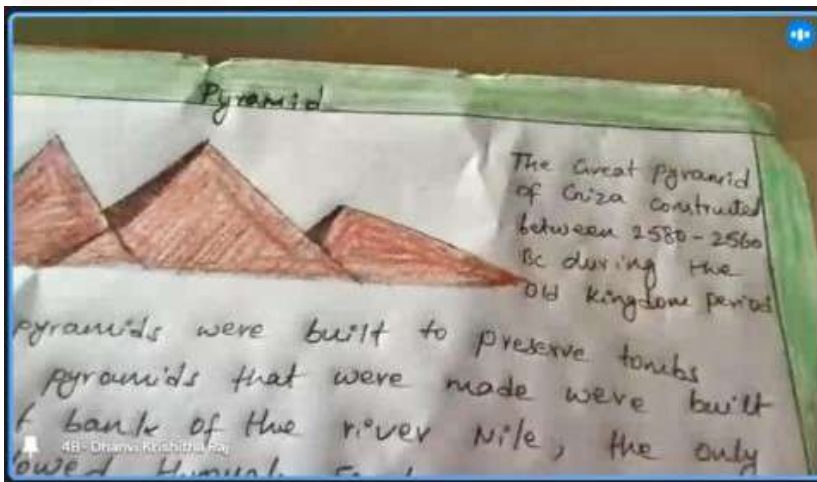 Pyramid
The Great pyramid
of Giza constructed
between 2580-2560
BC during the
Old kingdom period
pyramids were built to preserve tombs
pyramids that were made were built
bank of the river Nile, the only
4B- Dhanvi Krishitha Raj